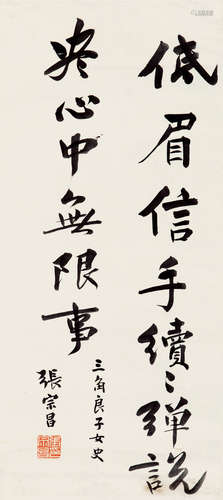 低眉信手續〻彈説
盡心中無限事
三角良子女史
張宗昌